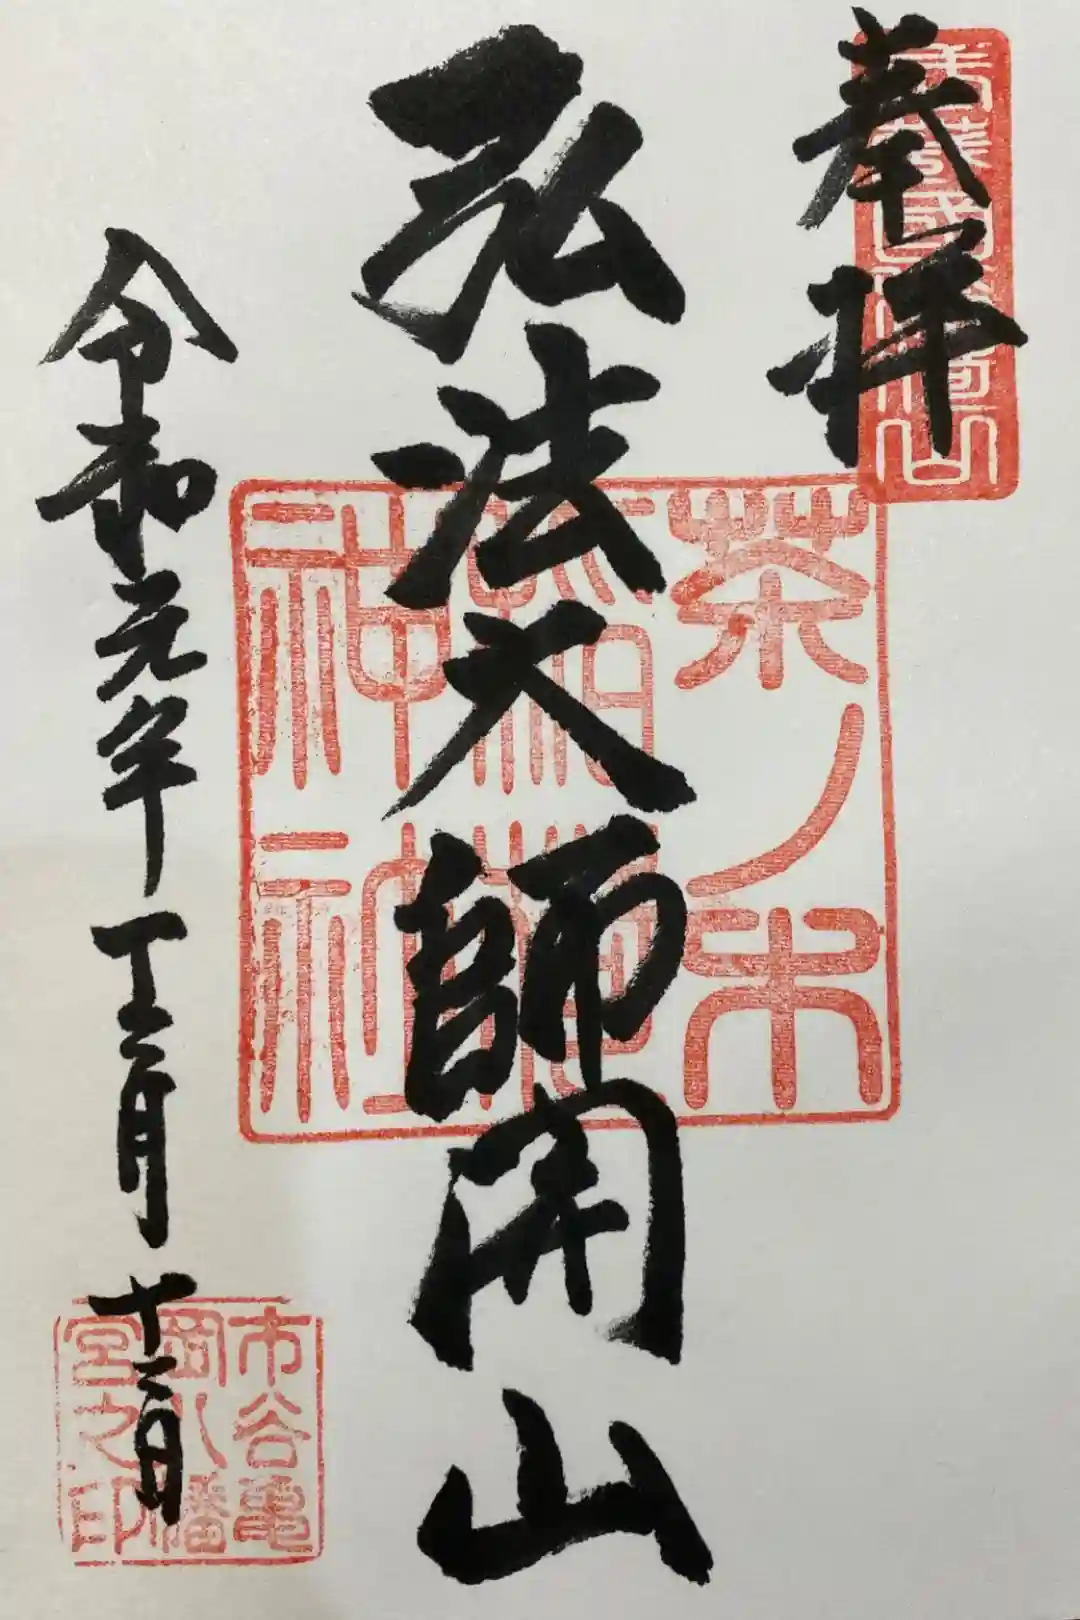 奉拝
弘法大師開山
茶ノ木
稲荷
神社
令和元年十二月十二日
市谷亀
岡八幡
宮之印